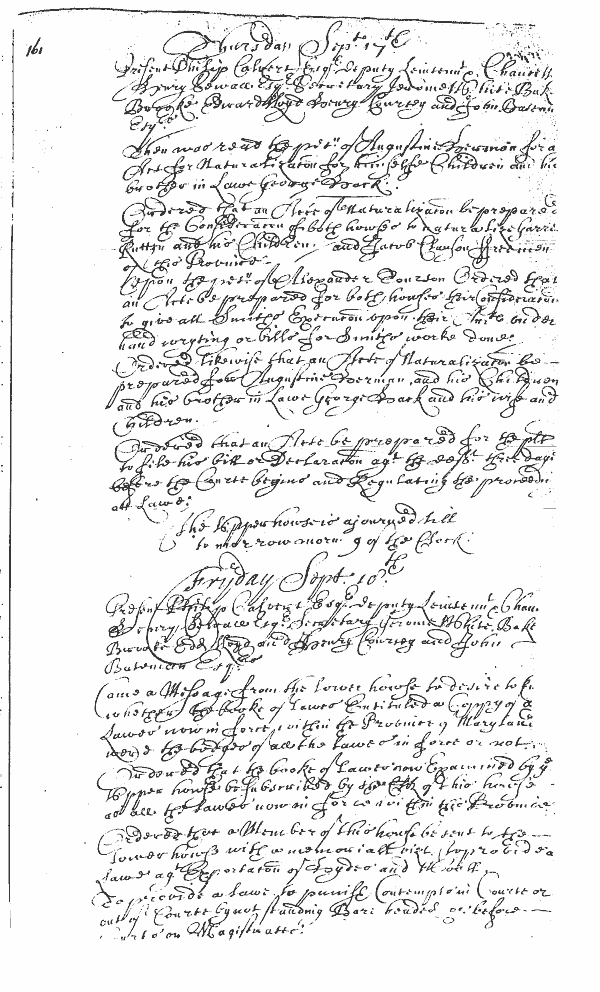 161
Thursday Sept. 17th
Present Philip Calvert Esqr. deputy Leiutennt. Chancell
Henry Sewall Esqr. Secretary Jerome White Bak
Brooke, Edward Lloyd Henry Coursey and John Batem
Esqrs
Then was read the petn of Augustine Herman for a
Act for Naturalizacon for himselfe Children and his
brother in Lawe George Hack.
Ordered that an Acte of Naturalizacon be prepared
for the Consideracon of both howses to naturalize
and his Children, and Jacob Clauson Freemen
of this Province.
Upon the petn of Alexander Ordered that
an Acte be prepared for both houses their consideracon
to give all Smiths Execucon upon their Accts under
hand wryting or bills for Smiths worke done.
Ordered likewise that an Acte of Naturalizacon be
prepared for Augustine Herman, and his Children
and his brother in Lawe George Hack and his wife and
Children.
Ordered that an Acte be prepared for the plt
to file his bill or Declaracon agt the deft. three days
before the Courte begins and Regulating the proceedn
att Lawe.
The Upper howse is ajourned till
to morrow morn: 9 of the Clock
Fryday Sept. 18th
Present Philip Calvert Esqr. deputy Leiutennt. Chan
Henry Sewall Esqr. Secretary Jerome White, Bake
Brooke Edd. Lloyd and Henry Coursey and John
Bateman Esqrs
Came a Message from the lower howse to desire to kn
whether the booke of Lawes Entituled a Coppy of
Lawes now in force within the Province of Maryland
were the bodyes of all the Lawes in force or not.
Ordered that the booke of Lawes now Examined by ye
Upper howse be subscribed by the Clk of this howse
as all the Lawes now in force within this Province.
Ordered that a Member of this house be sent to the
lower howse with a memoriall vizt. to provide a
Lawe agt Exportacon of Hydes and
To provide a Lawe to punish Contempts in Courte or
out of Courte by not standing Bare headed or before
Magistrates.